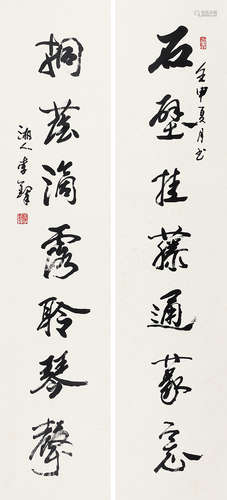 石壁挂藤通篆意
壬申夏月书
桐蔭滴露聆琴聲
湘人李鐸